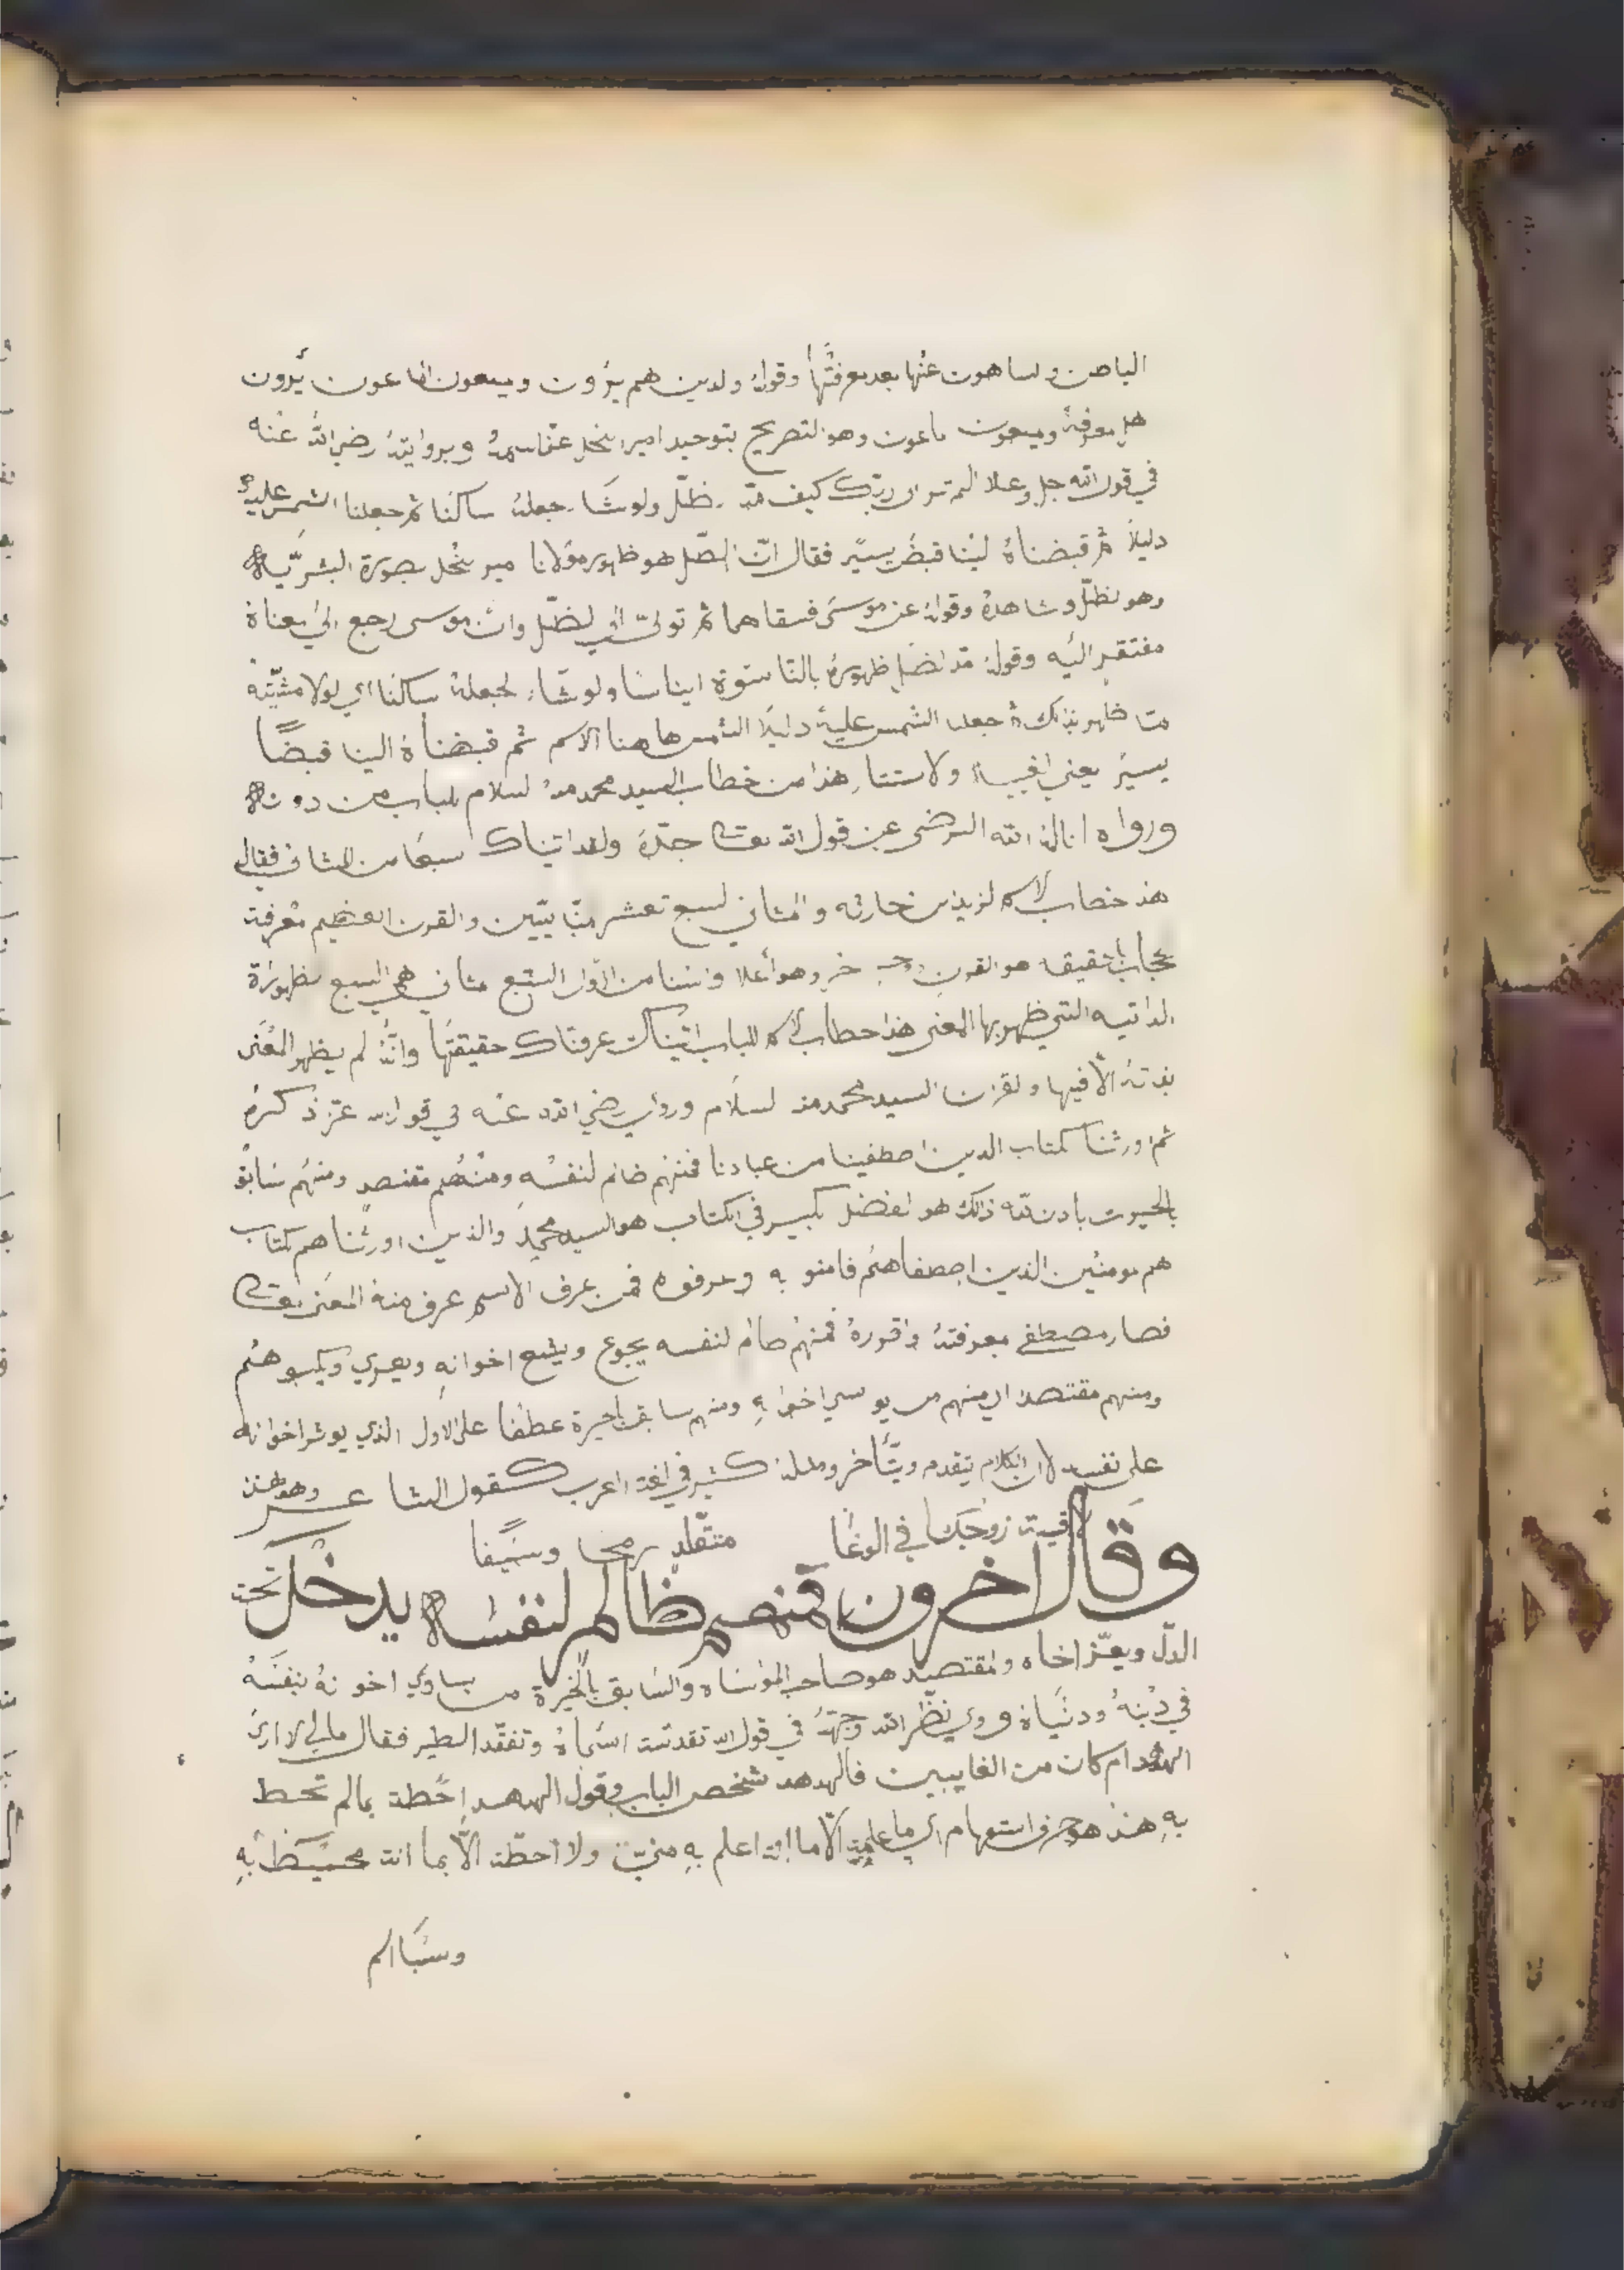 الباطن والساهون عنها بعد معرفتها وقوله والدين هم يرؤون ويمنعون الماعون يرون
اهل معرفة ويمنعون ماعون وهو التصريح بتوحيد امير النحل عز اسمه وبروايته رضي الله عنه
في قول الله جل وعلا الم تر الى ربك كيف مد الظل ولو شا لجعله ساكنا ثم جعلنا الشمس عليه
دليلا ثم قبضناه الينا قبض يسير فقال ان الضل هو ظهور مولانا مير النحل بصورة البشرية
وهو نظل وشاهده وقوله عن موسى فسقا هما ثم تولى الى لضل وان موسى رجع الى معناة
مفتقر اليه وقوله مد لضل ظهوره بالناسوة ايناسا ولو شاء لجعله ساكنا اي لولا مشيته
مت ظهر بذلك ثم جعلنا الشمس عليه دليلا الشمس ها هنا الاسم ثم قبضناة الينا قبضا
يسير يعني الغيبة ولاستتار هذا من خطاب السيد محمد منه لسلام للباب من دونه
ورواه اناله الله الرضى عن قول الله تعالى جده ولقد اتيناك سبعا من المثاني فقال
هذ خطاب لاسم لزيد ابن حارثه والمثاني لسبع تعشر منا نبيين والقرن العظيم معرفة
الداتيه التي ظهر بها المعنى هذا خطاب لاسم للباب اتيناك عرفناك حقيقتها وانه لم يظهر المعنى
بذاته الا فيها ولقران السيد محمد منه لسلام وروي رضي الله عنه في قوله عز ذكره
ثم اورثنا كتاب الدين اصطفينا من عبادنا فمنهم ضالم لنفسه ومنهم مقتصد ومنهم سابق
بالخيرت بأدن لله ذالك هو لفضل لكبير في الكتاب هو السيد محمد والذين اورثناهم كتاب
هم مومنين الذين اصطفاهم فامنو به وعرفوه فمن عرف الاسم عرف منه المعنى تعالى
فصار مصطفى معرفته واقروره فمنهم ضالم لنفسه يجوع ويشبع اخوانه ويعري ويكسوهم
ومنهم مقتصد اي منهم من يوسي اخوانه ومنهم سابق بالخيرة عطفا على الاول الذي يوثر اخوانه
على نفسه لان الكلام يتقدم ويتأخر ومثله كثير في لغة العرب كقول الشاعر وهو هذا
لاقيت زوجك في الوغا متقلد رمحا وسيفا
وقال اخرون فمنهم ظالم لنفسه يدخل تحت
الدل ويعز اخاه والمقتصد هو صاحب المؤساه والسابق بالخيرة من يساوي اخوانه بنفسه
في دينه ودنياة وروي نظر الله وجهه في قول الله تقدست اسماه وتفقد الطير فقال مالي لا ارى
الهدهد ام كان من الغايبين فالهدهد شخص الباب وقول الهدهد احطت بما لم تحط
به هذ هو حرف استفهام اي ما علمت الا ما انت اعلم به مني ولا احطت الا بما انت محيط به
وسبا الم